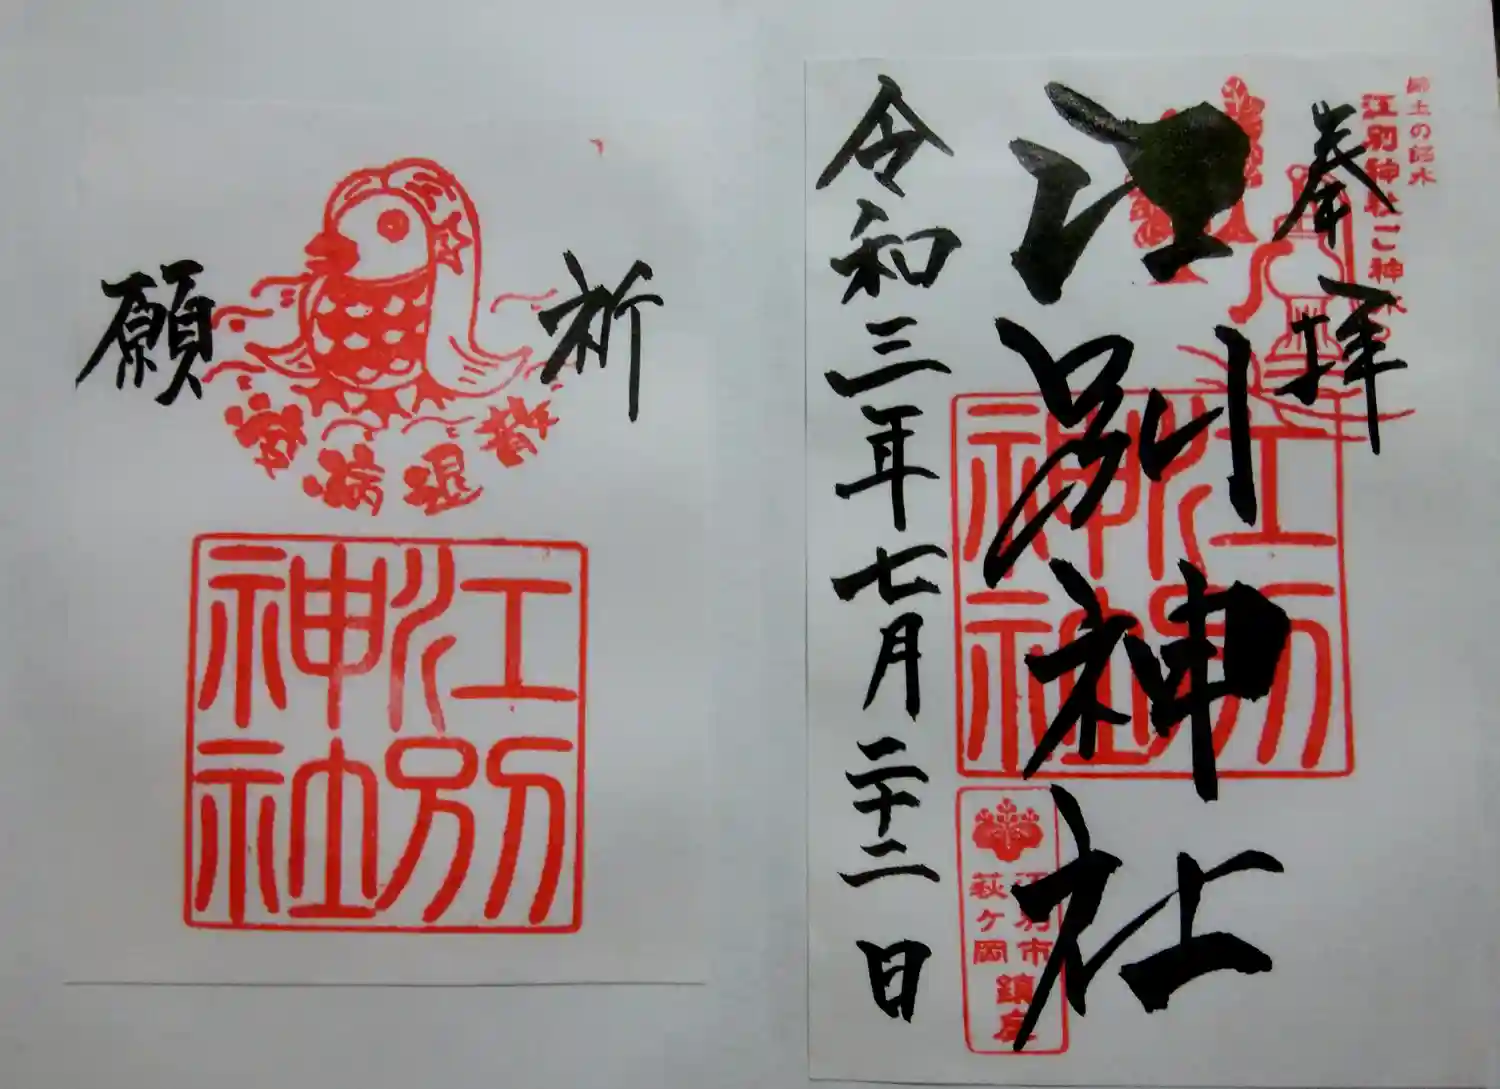 奉拝
郷土の銘木
江別神社ご神木の
江別神社
江別神社
江別市
萩ヶ岡
鎮座
令和三年七月二十二日
祈願
疫病退散
江別神社